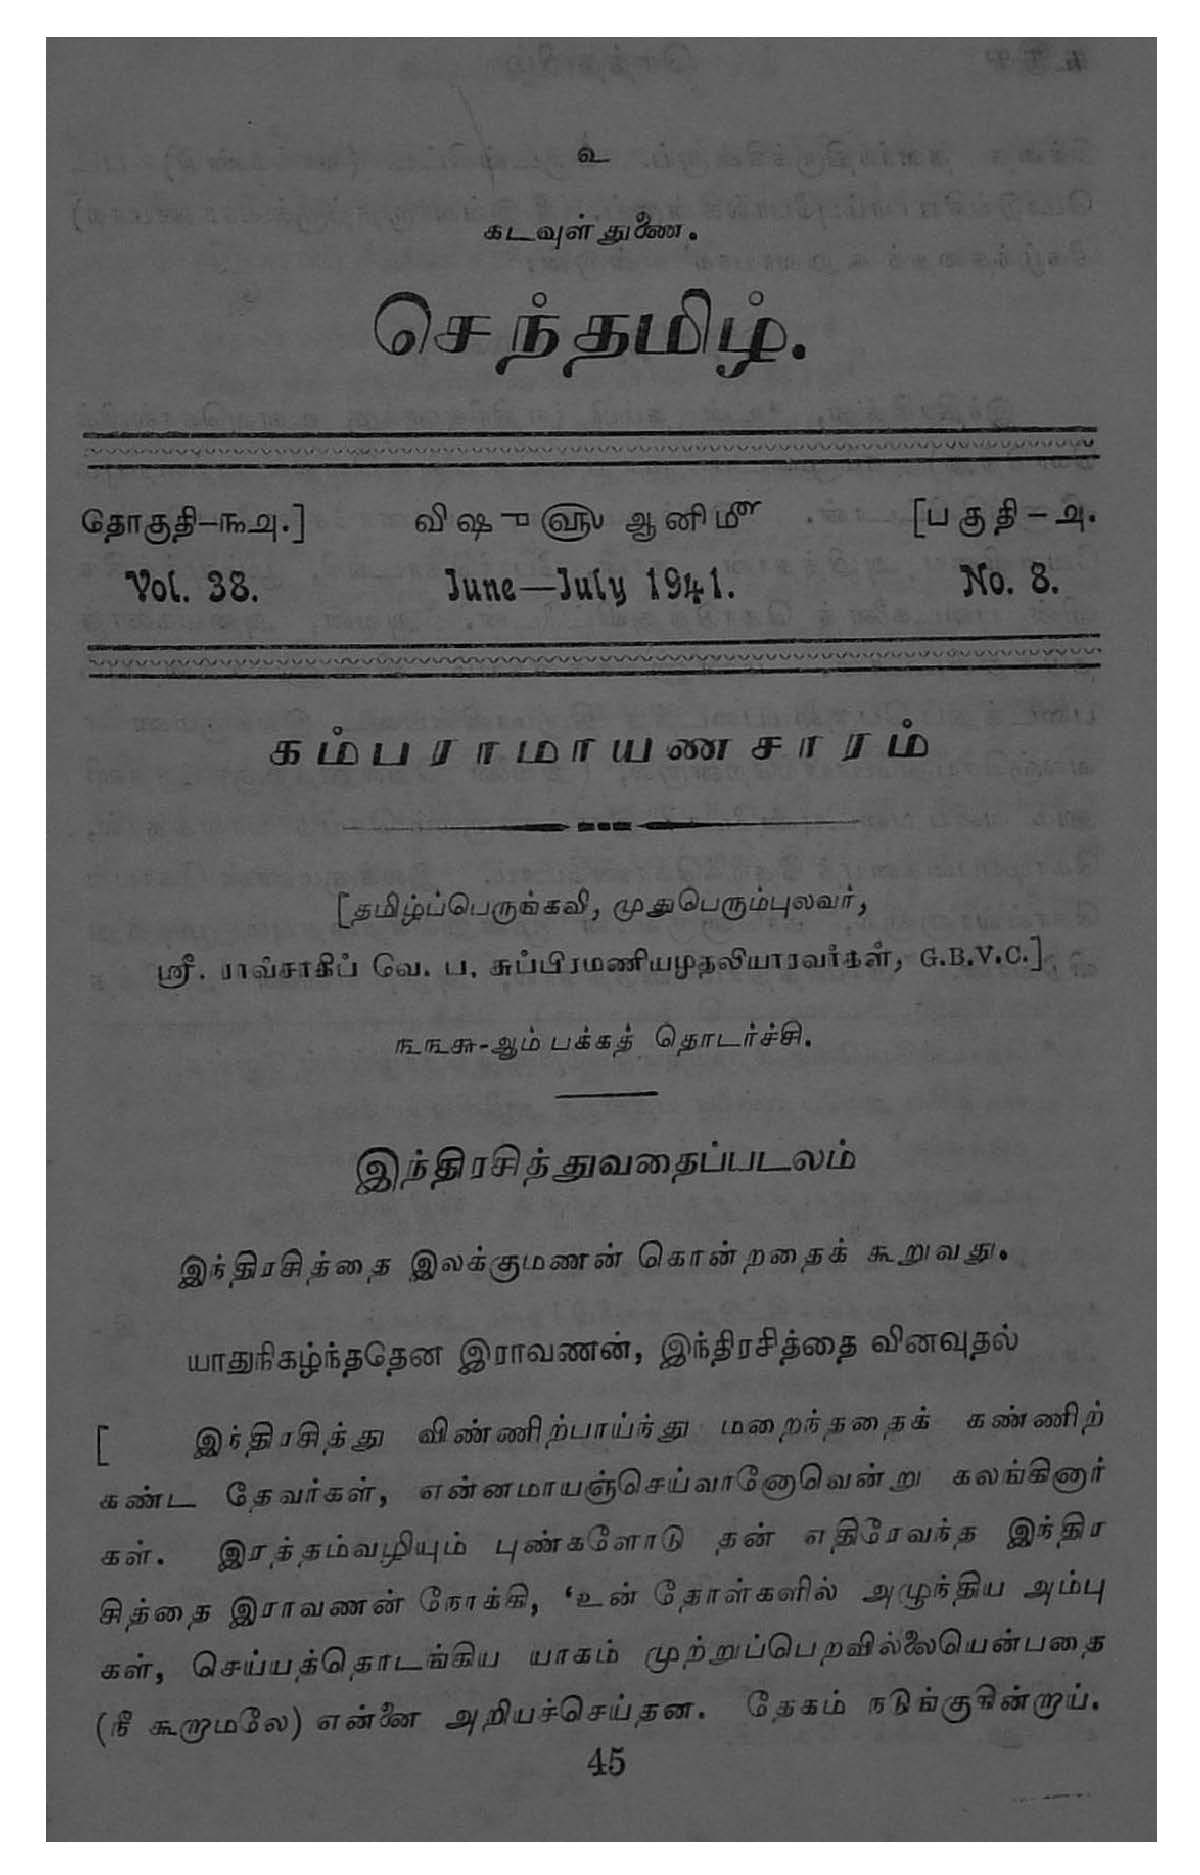 உ
கடவுள் துணை.
செந்தமிழ்.
தொகுதி—௩௮.] விஷு ௵ ஆனி ௴ [பகுதி — ௮.
Vol. 38. June—July 1941. No. 8.
கம்பராமாயணசாரம்
[தமிழ்ப்பெருங்கவி, முதுபெரும்புலவர்,
ஸ்ரீ. ராவ்சாகிப் வே. ப. சுப்பிரமணியமுதலியாரவர்கள், G.B.V.C.]
௩௩௬-ஆம் பக்கத் தொடர்ச்சி.
இந்திரசித்துவதைப்படலம்
இந்திரசித்தை இலக்குமணன் கொன்றதைக் கூறுவது.
யாதுநிகழ்ந்ததென இராவணன், இந்திரசித்தை வினவுதல்
[ இந்திரசித்து விண்ணிற்பாய்ந்து மறைந்ததைக் கண்ணிற்
கண்ட தேவர்கள், என்னமாயஞ்செய்வானோவென்று கலங்கினார்
கள். இரத்தம்வழியும் புண்களோடு தன் எதிரேவந்த இந்திர
சித்தை இராவணன் நோக்கி, ‘உன் தோள்களில் அழுந்திய அம்பு
கள், செய்யத்தொடங்கிய யாகம் முற்றுப்பெறவில்லையென்பதை
(நீ கூறாமலே) என்னை அறியச்செய்தன. தேகம் நடுங்குகின்றாய்.
45